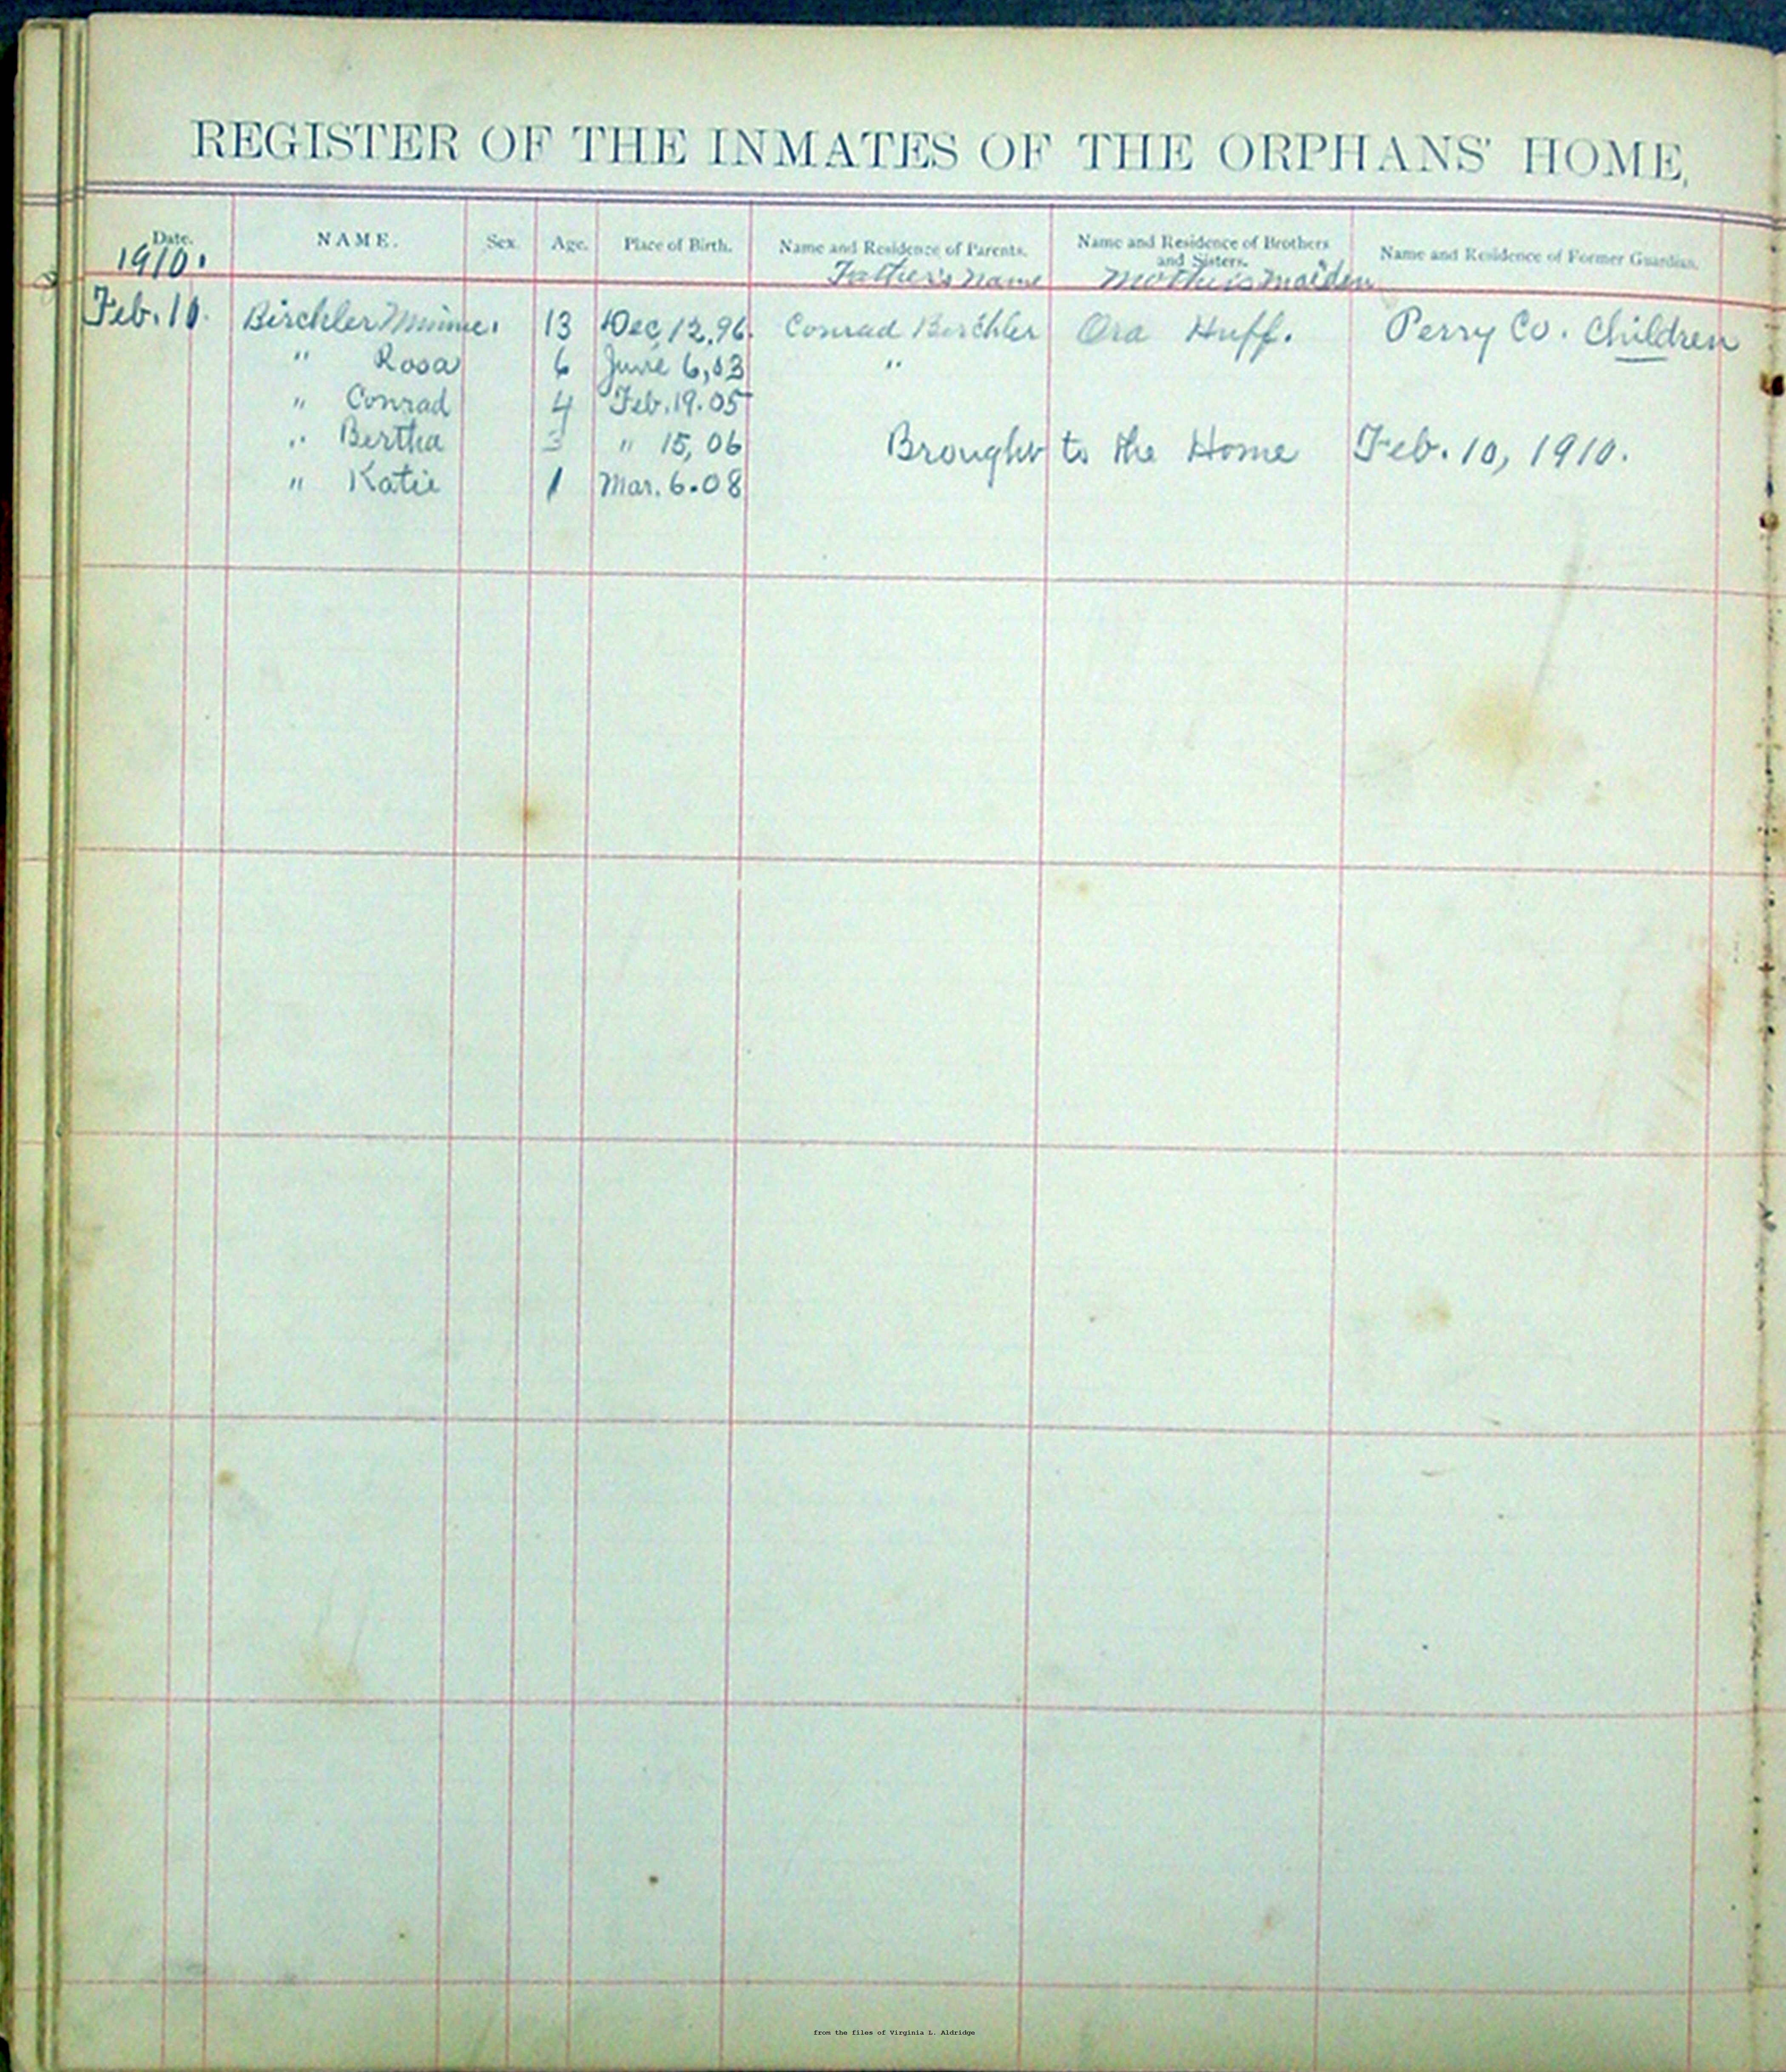 REGISTER OF THE INMATES OF THE ORPHANS' HOME,
Date. NAME. Sex. Age. Place of Birth. Name and Residence of Parents. Name and Residence of Brothers and Sisters. Name and Residence of Former Guardian.
1910. Father's Name Mother's Maiden
Feb. 10. Birchler Minnie. 13 Dec, 12, 96. Conrad Birchler Ora Huff. Perry Co. Children
" Rosa 6 June 6, 03 "
" Conrad 4 Feb. 19. 05
" Bertha 3 " 15, 06 Brought to the Home Feb. 10, 1910.
" Katie 1 Mar. 6. 08
from the files of Virginia L. Aldridge